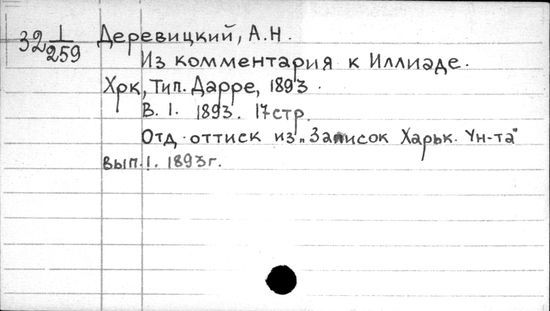 32 1/259
Деревицкий, А.Н.
Из комментария к Иллиаде.
Хрк, Тип. Дарре, 1893.
В. 1. 1893. 17стр.
Отд. оттиск из „Записок Харьк. Ун-та"
вып. 1. 1893г.